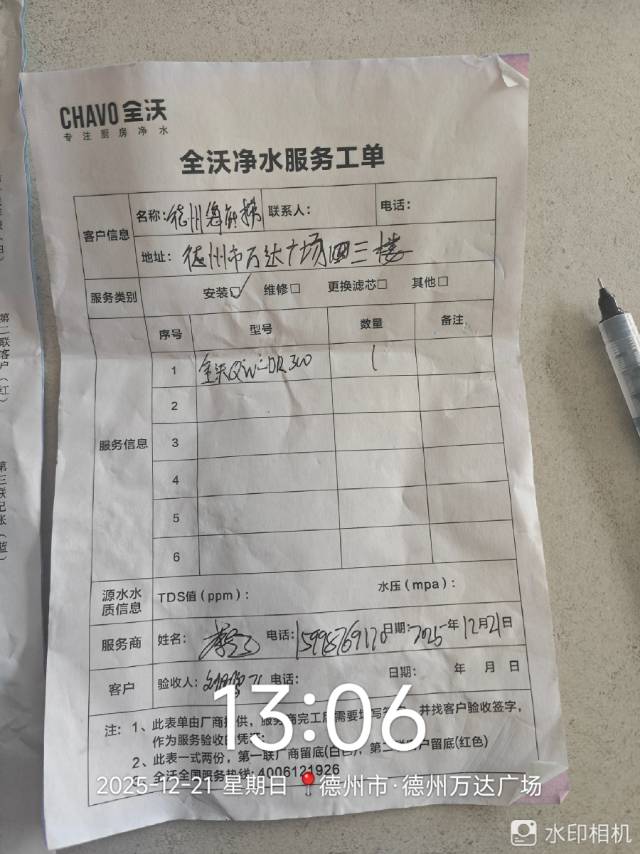 CHAVO 全沃
专注厨房净水
全沃净水服务工单
客户信息
名称：德州 联系人： 电话：
地址：德州市万达广场 三楼
服务类别 安装☑ 维修□ 更换滤芯□ 其他□
服务信息
序号 型号 数量 备注
1 全沃QW-DR300 1
2
3
4
5
6
源水水质信息 TDS值（ppm）： 水压（mpa）：
服务商 姓名： 电话：15998769170 日期：2025年12月21日
客户 验收人： 电话： 日期： 年 月 日
注：1、此表单由厂商提供，服务商完工后需要填写 并找客户验收签字，
作为服务验收的凭
2、此表一式两份，第一联厂商留底(白色)，第二联客户留底(红色)
全沃全国服务热线：4006121926
13:06
2025-12-21 星期日 德州市·德州万达广场
水印相机
第二联客户（红
第三联记账（蓝